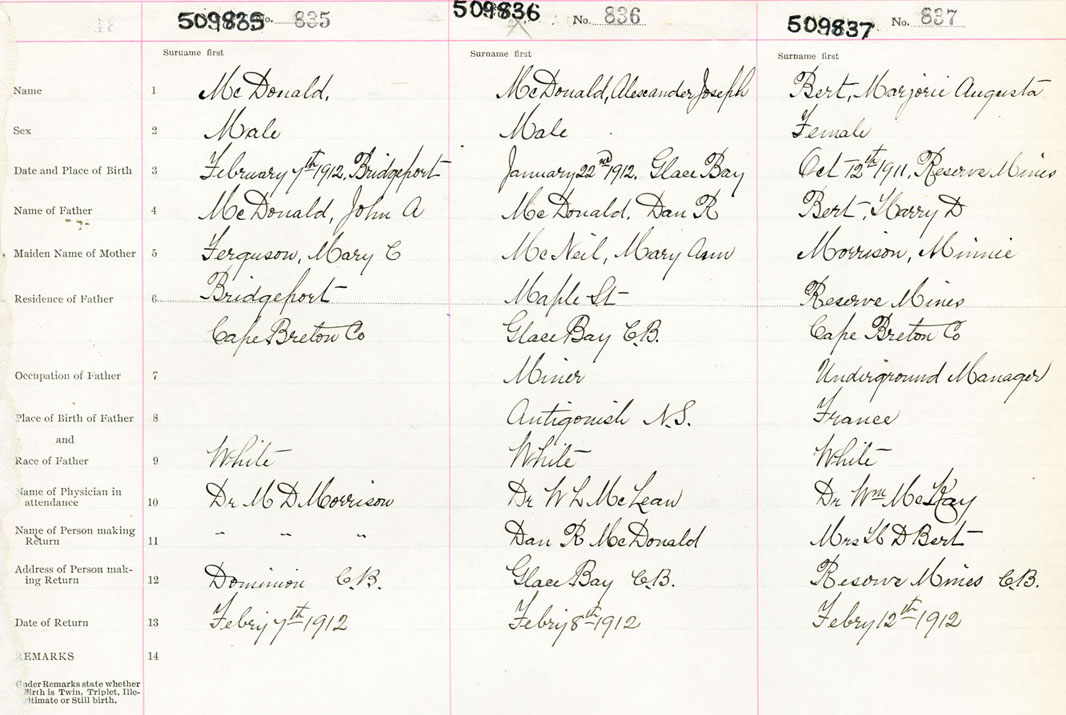 509835 No. 835
509836 No. 836
509837 No. 837
Surname first Surname first Surname first
Name 1 McDonald, McDonald, Alexander Joseph Bert, Marjorie Augusta
Sex 2 Male Male Female
Date and Place of Birth 3 February 7th 1912, Bridgeport January 22nd 1912, Glace Bay Oct 12th 1911, Reserve Mines
Name of Father 4 McDonald, John A McDonald, Dan R Bert, Harry D
Maiden Name of Mother 5 Ferguson, Mary C McNeil, Mary Ann Morrison, Minnie
Residence of Father 6 Bridgeport Maple St Reserve Mines
Cape Breton Co Glace Bay C.B. Cape Breton Co
Occupation of Father 7 Miner Underground Manager
Place of Birth of Father 8 Antigonish N.S. France
and
Race of Father 9 White White White
Name of Physician in
attendance 10 Dr M D Morrison Dr W L McLean Dr Wm McKay
Name of Person making
Return 11 " " " Dan R McDonald Mrs H D Bert
Address of Person mak-
ing Return 12 Dominion C.B. Glace Bay C.B. Reserve Mines C.B.
Date of Return 13 Febry 7th 1912 Febry 8th 1912 Febry 12th 1912
REMARKS 14
Under Remarks state whether
Birth is Twin, Triplet, Ille-
gitimate or Still birth.